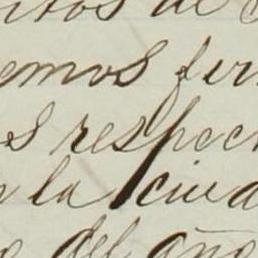 itos de
emos fir
s respec
e la ciud
o del año